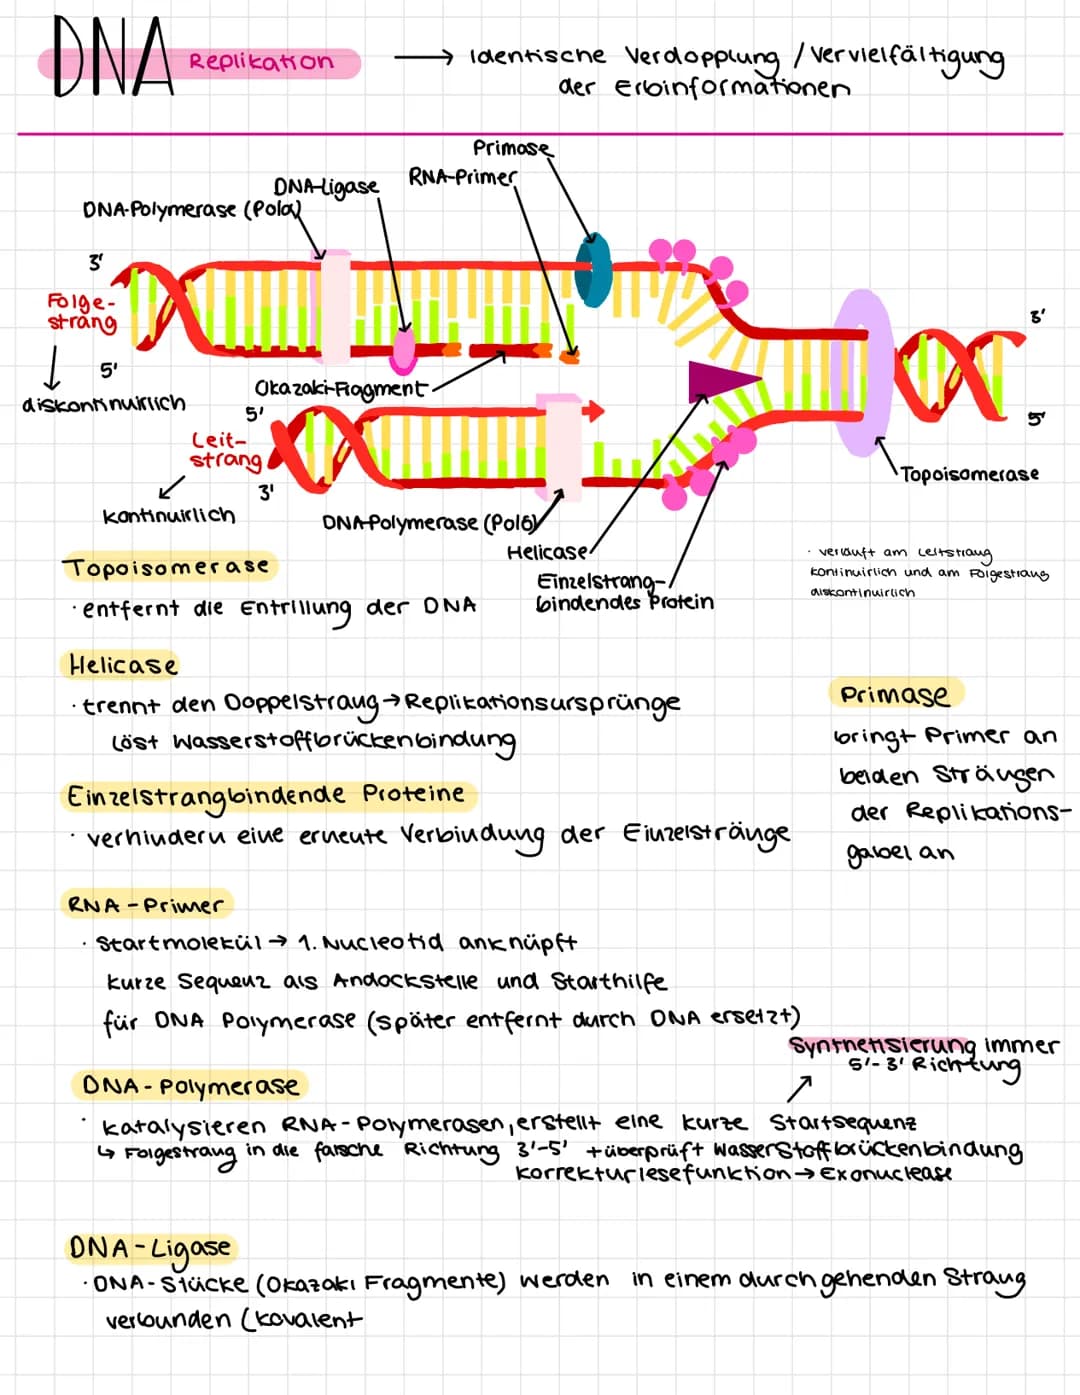 DNA Replikation → Identische Verdopplung / Vervielfältigung
der Erbinformationen
Primase
RNA-Primer
DNA-Ligase
DNA-Polymerase (Polα)
3'
Folge-
strang
5'
diskontinuirlich
Okazaki-Fragment
5'
Leit-
strang
3'
kontinuirlich
DNA-Polymerase (Polδ)
Helicase
Einzelstrang-
bindendes Protein
3'
5'
Topoisomerase
· verläuft am Leitstrang
kontinuirlich und am Folgestrang
diskontinuirlich
Topoisomerase
· entfernt die Entrillung der DNA
Helicase
· trennt den Doppelstrang → Replikationsursprünge
löst Wasserstoffbrückenbindung
Primase
bringt Primer an
beiden Strängen
der Replikations-
gabel an
Einzelstrangbindende Proteine
· verhindern eine erneute Verbindung der Einzelstränge
RNA - Primer
· Startmolekül → 1. Nucleotid anknüpft
kurze Sequenz als Andockstelle und Starthilfe
für DNA Polymerase (später entfernt durch DNA ersetzt)
Synthetisierung immer
5'- 3' Richtung
DNA - Polymerase
· katalysieren RNA - Polymerasen, erstellt eine kurze Startsequenz
↳ Folgestrang in die falsche Richtung 3'-5' + überprüft Wasserstoffbrückenbindung
korrekturlesefunktion → Exonuclease
DNA - Ligase
· DNA - Stücke (Okazaki Fragmente) werden in einem durchgehenden Strang
verbunden (kovalent